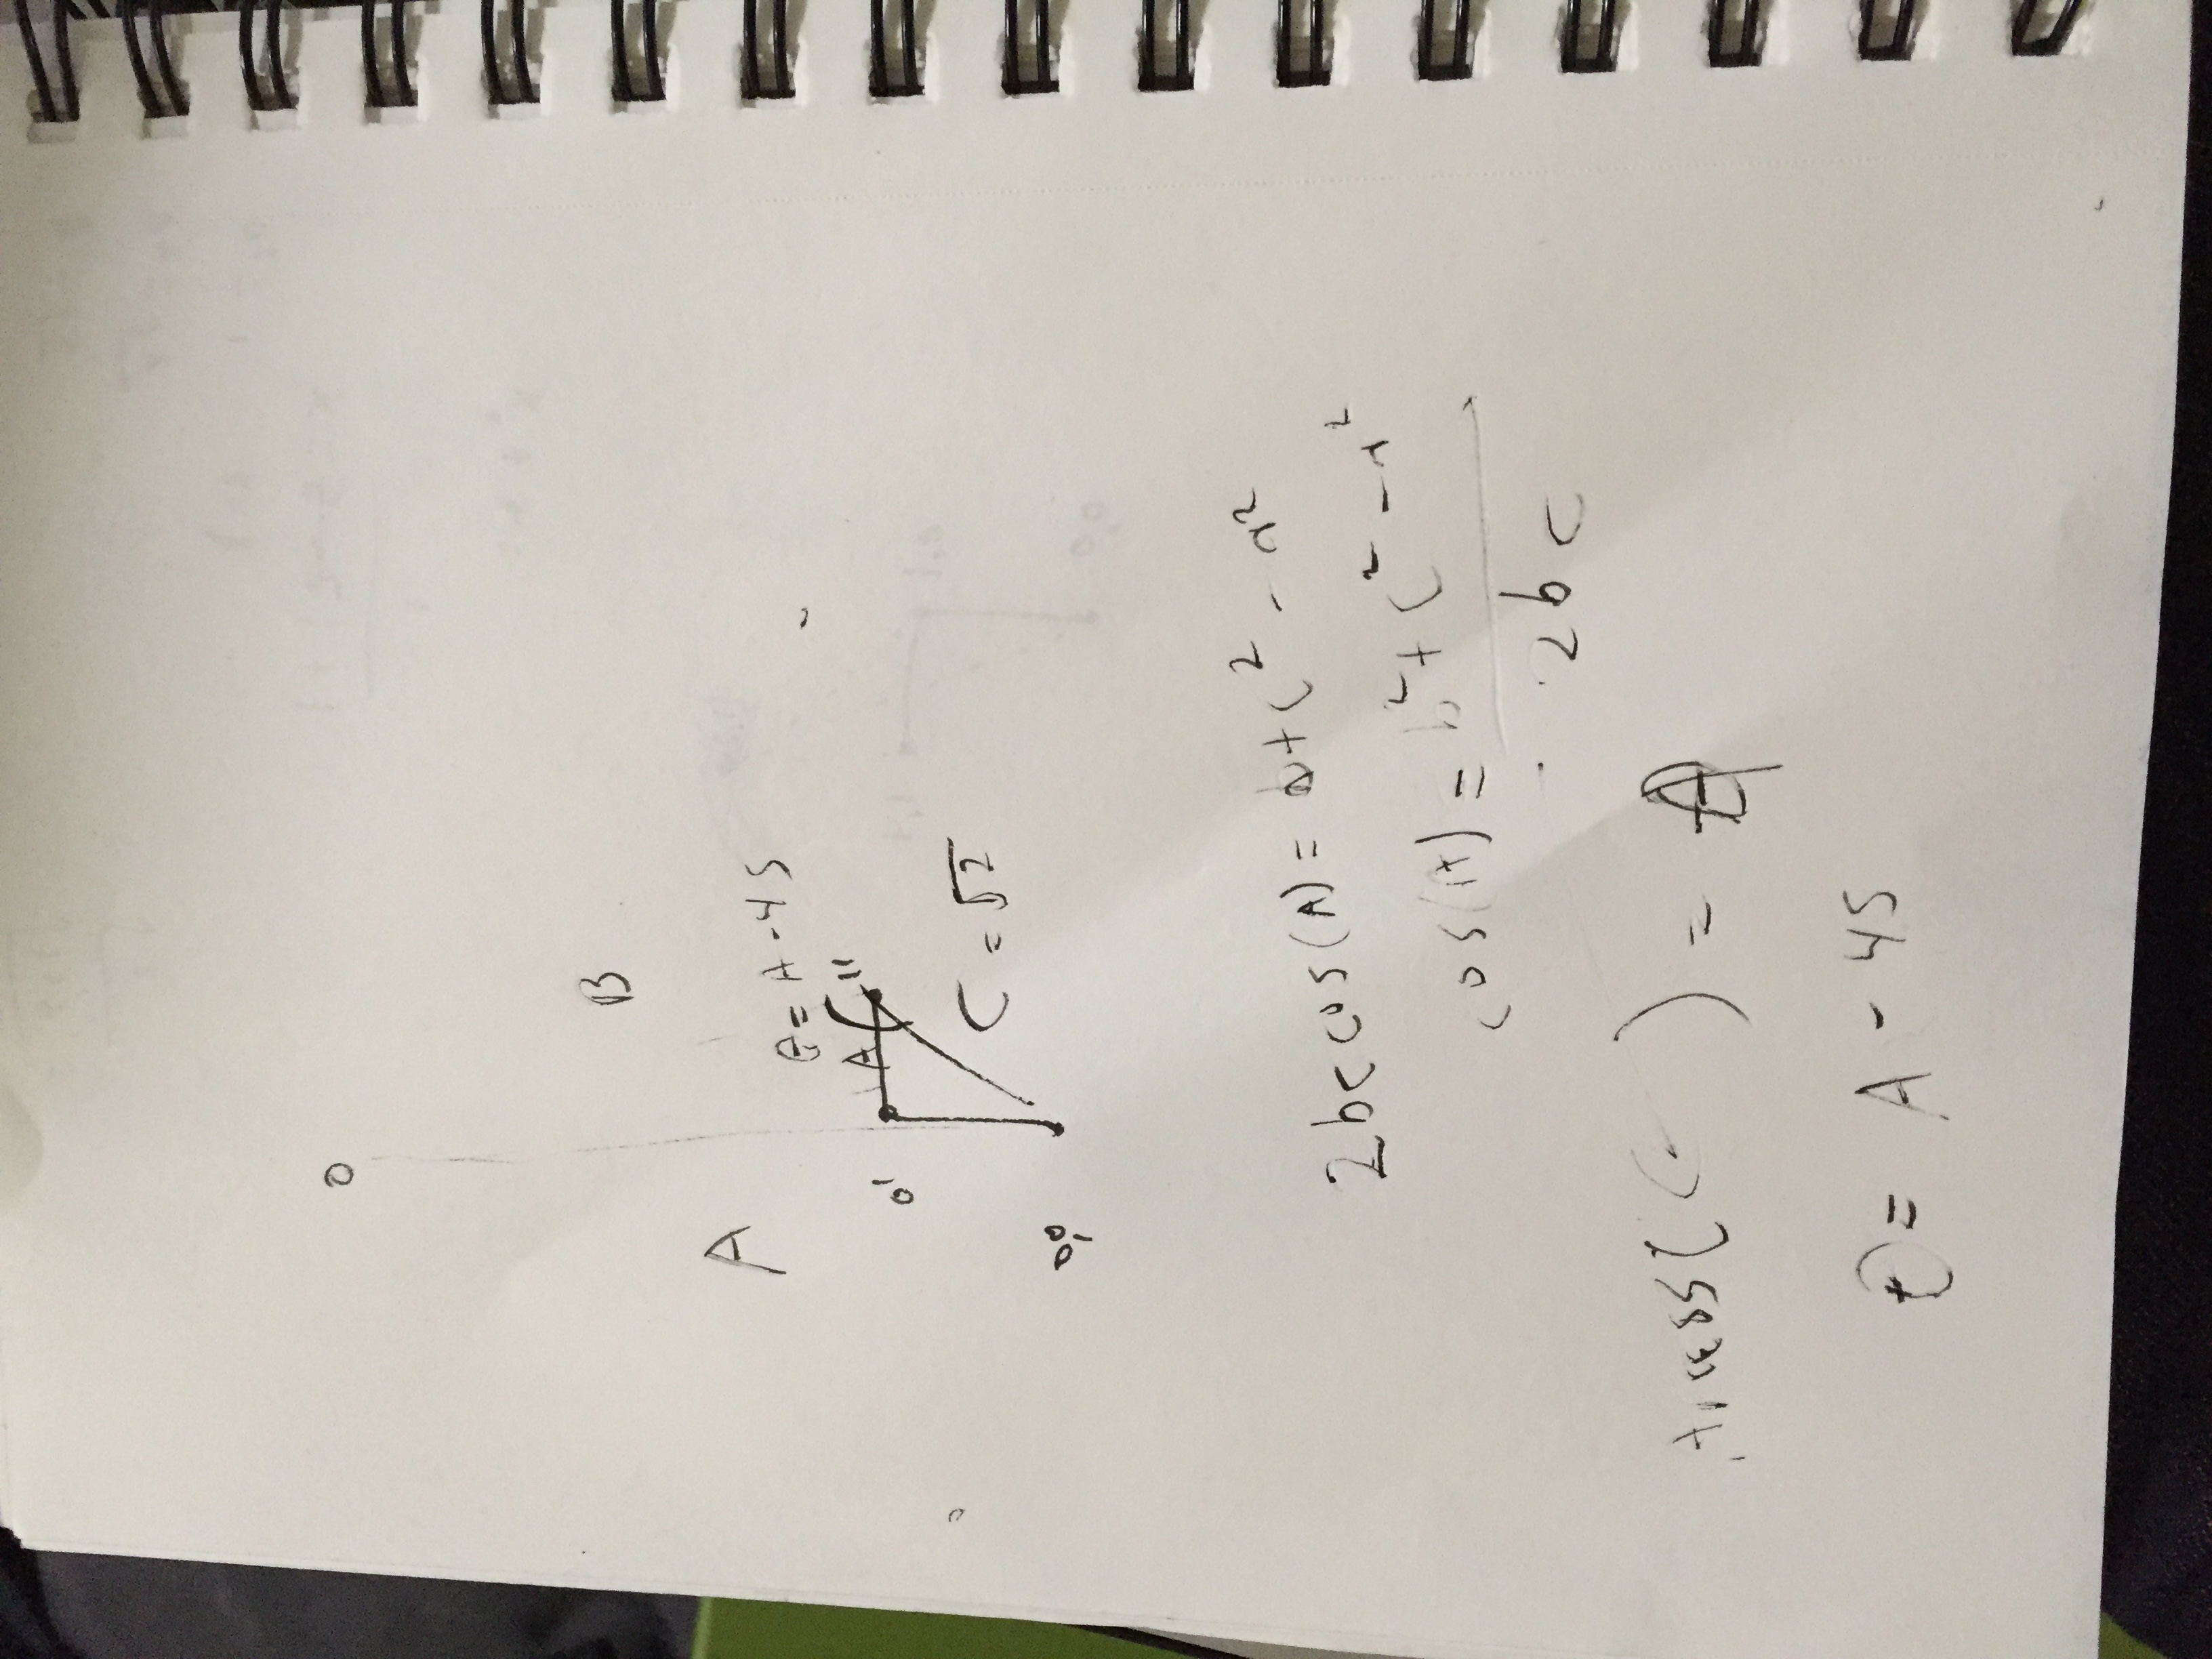 0
B
A
θ = A - 45
A
11
0'
C = √2
0,0
2bc cos(A) = b + c² - a²
cos(A) = b² + c² - a²
2bc
Arccos( ) = A
θ = A - 45